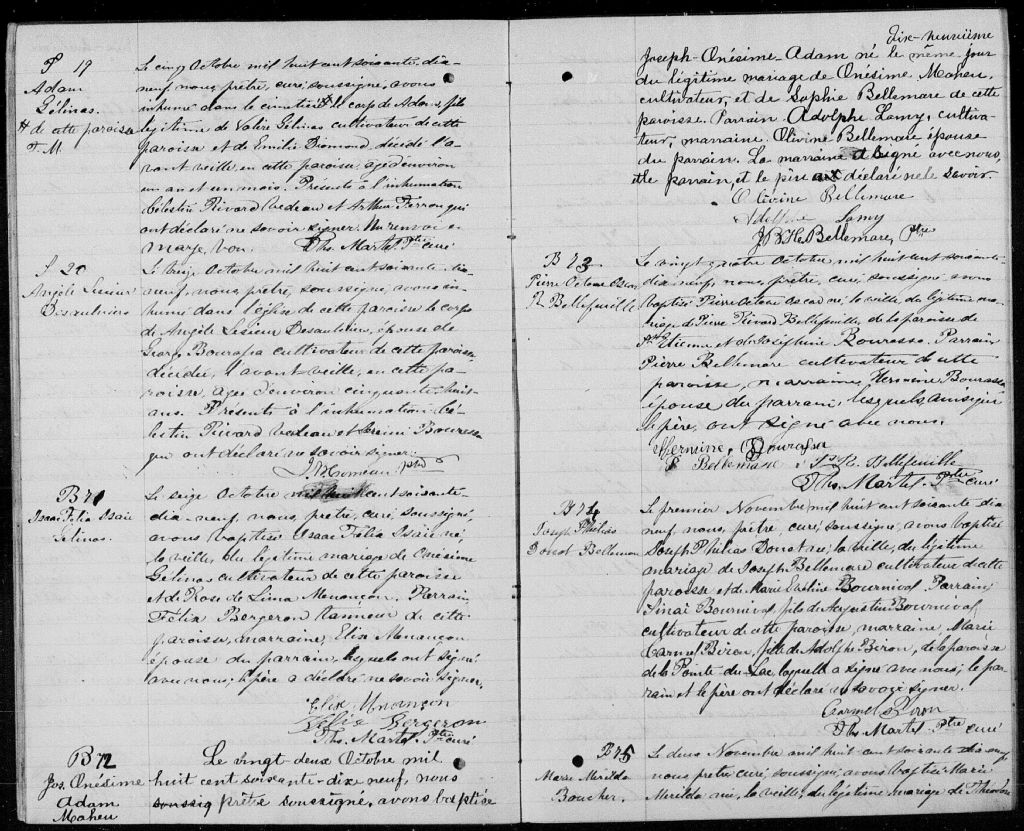 S 19
Adam
Gélinas.
# de cette paroisse
T. M
Le cinq Octobre mil huit cent soixante-dix-
neuf, nous, prêtre, curé, soussigné, avons
inhumé dans le cimetière # le corps de Adam, fils
légitime de Valère Gélinas cultivateur de cette
paroisse et de Emilie décédé l'a-
vant veille en cette paroisse, agé d'environ
un an et un mois. Présents à l'inhumation
Célestin Rivard Bedeau et Arthur Ferron qui
ont déclaré ne savoir signer. Un renvoi en
marge, bon. Ths. Martel Ptre curé
S 20
Angèle Lesieur
Desaulniers
Le treize Octobre mil huit cent soixante-dix-
neuf, nous, prêtre, soussigné, avons in-
humé dans l'église de cette paroisse le corps
de Angèle Lesieur Desaulniers, épouse de
George Bourassa cultivateur de cette paroisse
décédée, l'avant veille, en cette pa-
roisse, agée d'environ cinquante huit
ans. Présents à l'inhumation Cé-
lestin Rivard bedeau et Bourassa
qui ont déclaré ne savoir signer.
ptre
B 71
Isaac Félix Isaïe
Gélinas.
Le seize Octobre mil huit cent soixante-
dix-neuf, nous, prêtre, curé, soussigné,
avons baptisé Isaac Félix Isaïe né,
la veille, du légitime mariage de Onésime
Gélinas cultivateur de cette paroisse
et de Rose de Lima Menançon. Parrain,
Félix Bergeron tanneur de cette
paroisse, marraine, Elise Menançon
épouse du parrain, lesquels ont signé
avec nous; le père a déclaré ne savoir signer.
Elise Menançon
Félix Bergeron
Ths. Martel Ptre curé
B 72
Jos. Onésime
Adam
Maheu
Le vingt deux Octobre mil
huit cent soixante-dix neuf, nous
soussig prêtre soussigné, avons baptisé
dix-neuvième
Joseph-Onésime-Adam né le même jour
du légitime mariage de Onésime Maheu,
cultivateur, et de Sophie Bellemare de cette
paroisse. Parrain Adolphe Lamy, cultiva-
teur, marraine Olivine Bellemare épouse
du parrain. La marraine a signé avec nous,
et le parrain, et le père ont déclaré ne le savoir.
Olivine Bellemare
Adolphe Lamy
J. B. H. Bellemare, Ptre
B 73
Pierre Octave Oscar
R. Bellefeuille
Le vingt quatre Octobre mil huit cent soixante-
dix neuf, nous, prêtre, curé, soussigné avons
baptisé Pierre Octave Oscar né, la veille du légitime ma-
riage de Pierre Rivard Bellefeuille, de la paroisse de
St Etienne et de Joséphine Bourassa. Parrain
Pierre Bellemare cultivateur de cette
paroisse, marraine, Hermine Bourassa
épouse du parrain, lesquels, ainsi que
le père, ont signé avec nous.
Hermine Bourassa
P. Bellemare R. Bellefeuille
Ths. Martel Ptre curé
B 74
Joseph Philias
Donat Bellemare
Le premier Novembre mil huit cent soixante dix
neuf, nous, prêtre, curé, soussigné, avons baptisé
Joseph Philias Donat né, la veille, du légitime
mariage de Joseph Bellemare cultivateur de cette
paroisse et de Marie Bournival. Parrain,
Sinaï Bournival, fils de Augustin Bournival
cultivateur de cette paroisse, marraine, Marie
Carmel Biron, fille de Adolphe Biron, de la paroisse
de la Pointe-du-Lac, laquelle a signé avec nous; le par-
rain et le père ont déclaré ne savoir signer.
Carmel Biron
Ths. Martel Ptre curé
B 75
Marie Mérilda
Boucher.
Le deux Novembre mil huit cent soixante dix neuf
nous prêtre curé, soussigné, avons baptisé Marie
Mérilda née, la veille, du légitime mariage de Théodore